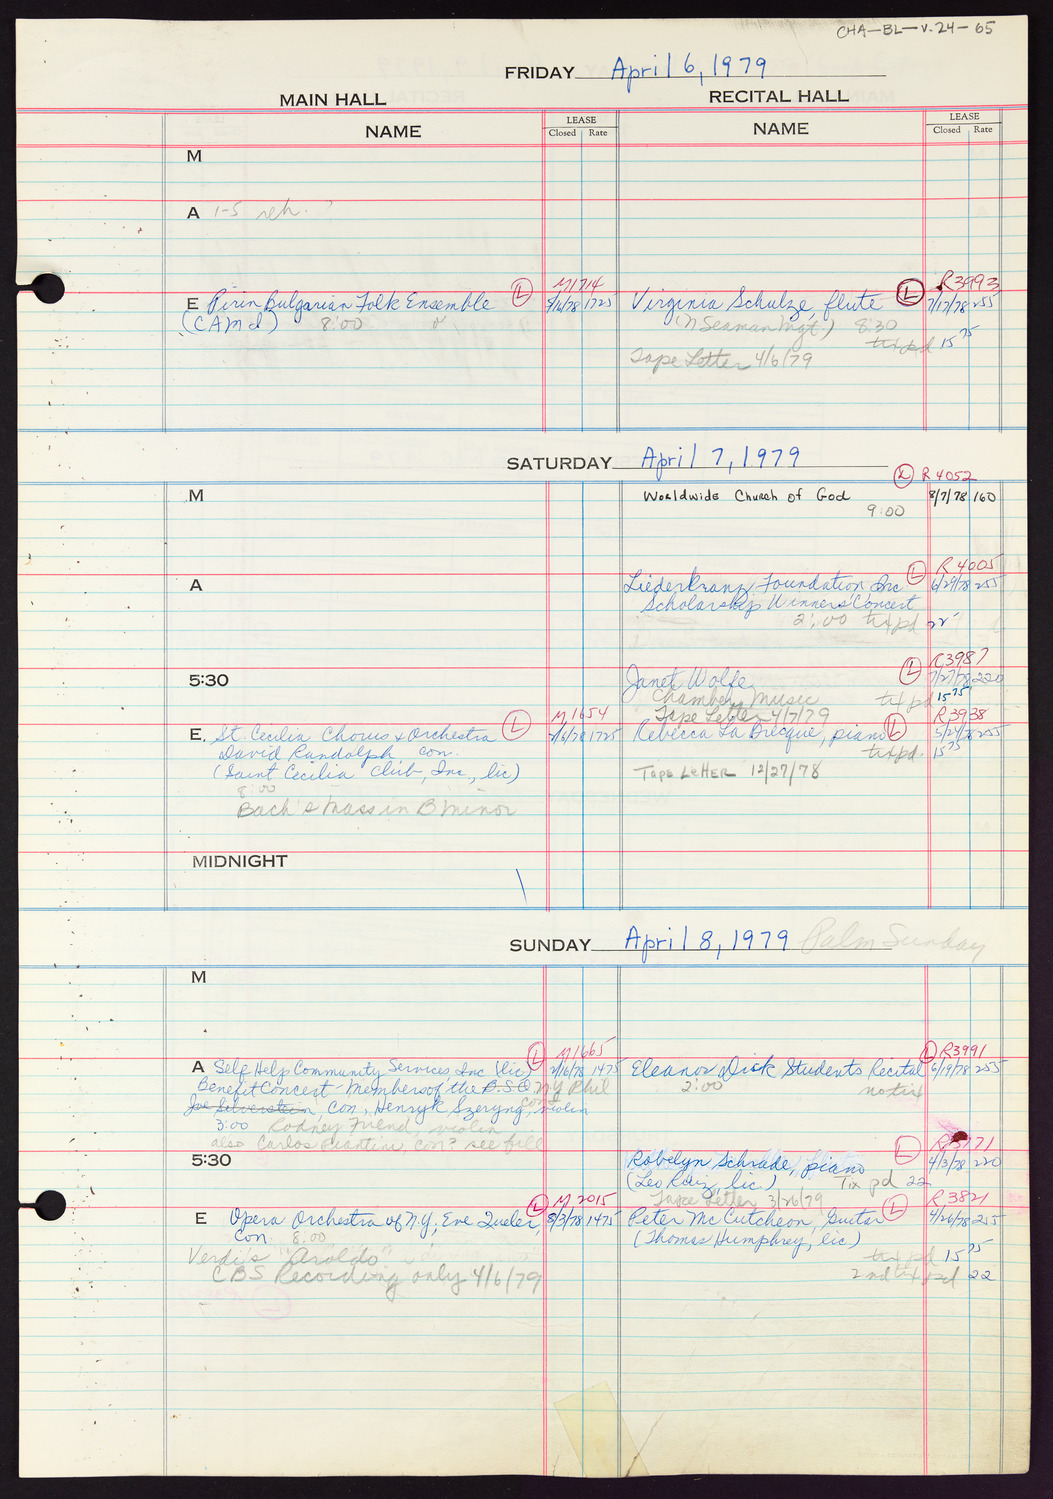 CHA-BL-V.24-65
FRIDAY April 6, 1979
MAIN HALL RECITAL HALL
NAME LEASE Closed Rate NAME LEASE Closed Rate
M
A 1-5 reh. ?
M1714 R3993
E Pirin Bulgarian Folk Ensemble L 1725 Virginia Schulze, flute L 7/17/78 255
(CAMI) 8:00 (N Seaman Mgt.) 8:30
tix pd 15 75
Tape Letter 4/6/79
SATURDAY April 7, 1979
L R4052
M Worldwide Church of God 8/7/78 160
9:00
L R4005
A Liederkranz Foundation Inc 6/29/78 255
Scholarship Winners' Concert
2:00 tix pd 22
L R3987
5:30 Janet Wolfe 7/27/78 220
Chamber Music tix pd 15 75
M1654 Tape Letter 4/7/79 R3938
E. St. Cecilia Chorus & Orchestra L 1725 Rebecca La Brecque, piano L 5/24/78 255
David Randolph con. tix pd. 15 75
(Saint Cecilia Club, Inc., lic) Tape Letter 12/27/78
8:00
Bach's Mass in B Minor
MIDNIGHT
SUNDAY April 8, 1979 Palm Sunday
M
L M1665 L R3991
A Self Help Community Services Inc (lic) 2/6/78 1475 Eleanor Dick Students Recital 6/19/78 255
Benefit Concert - Members of the B.S.O. NY Phil 2:00 no tix
Joe Silverstein, con., Henryk Szeryng, violin
3:00 Rodney Friend, violin
also Carlos Piantini, con? see file
L R3171
5:30 Robelyn Schrade, piano 4/3/78 220
(Leo Ruiz, lic.) Tix pd 22
L M2015 Tape Letter 3/26/79 L R3821
E Opera Orchestra of N.Y., Eve Queler, 8/3/78 1475 Peter McCutcheon, Guitar 4/26/78 255
Con 8:00 (Thomas Humphrey, lic)
Verdi's "Aroldo" tix pd 15 75
CBS Recording only 4/6/79 2nd tix pd 22